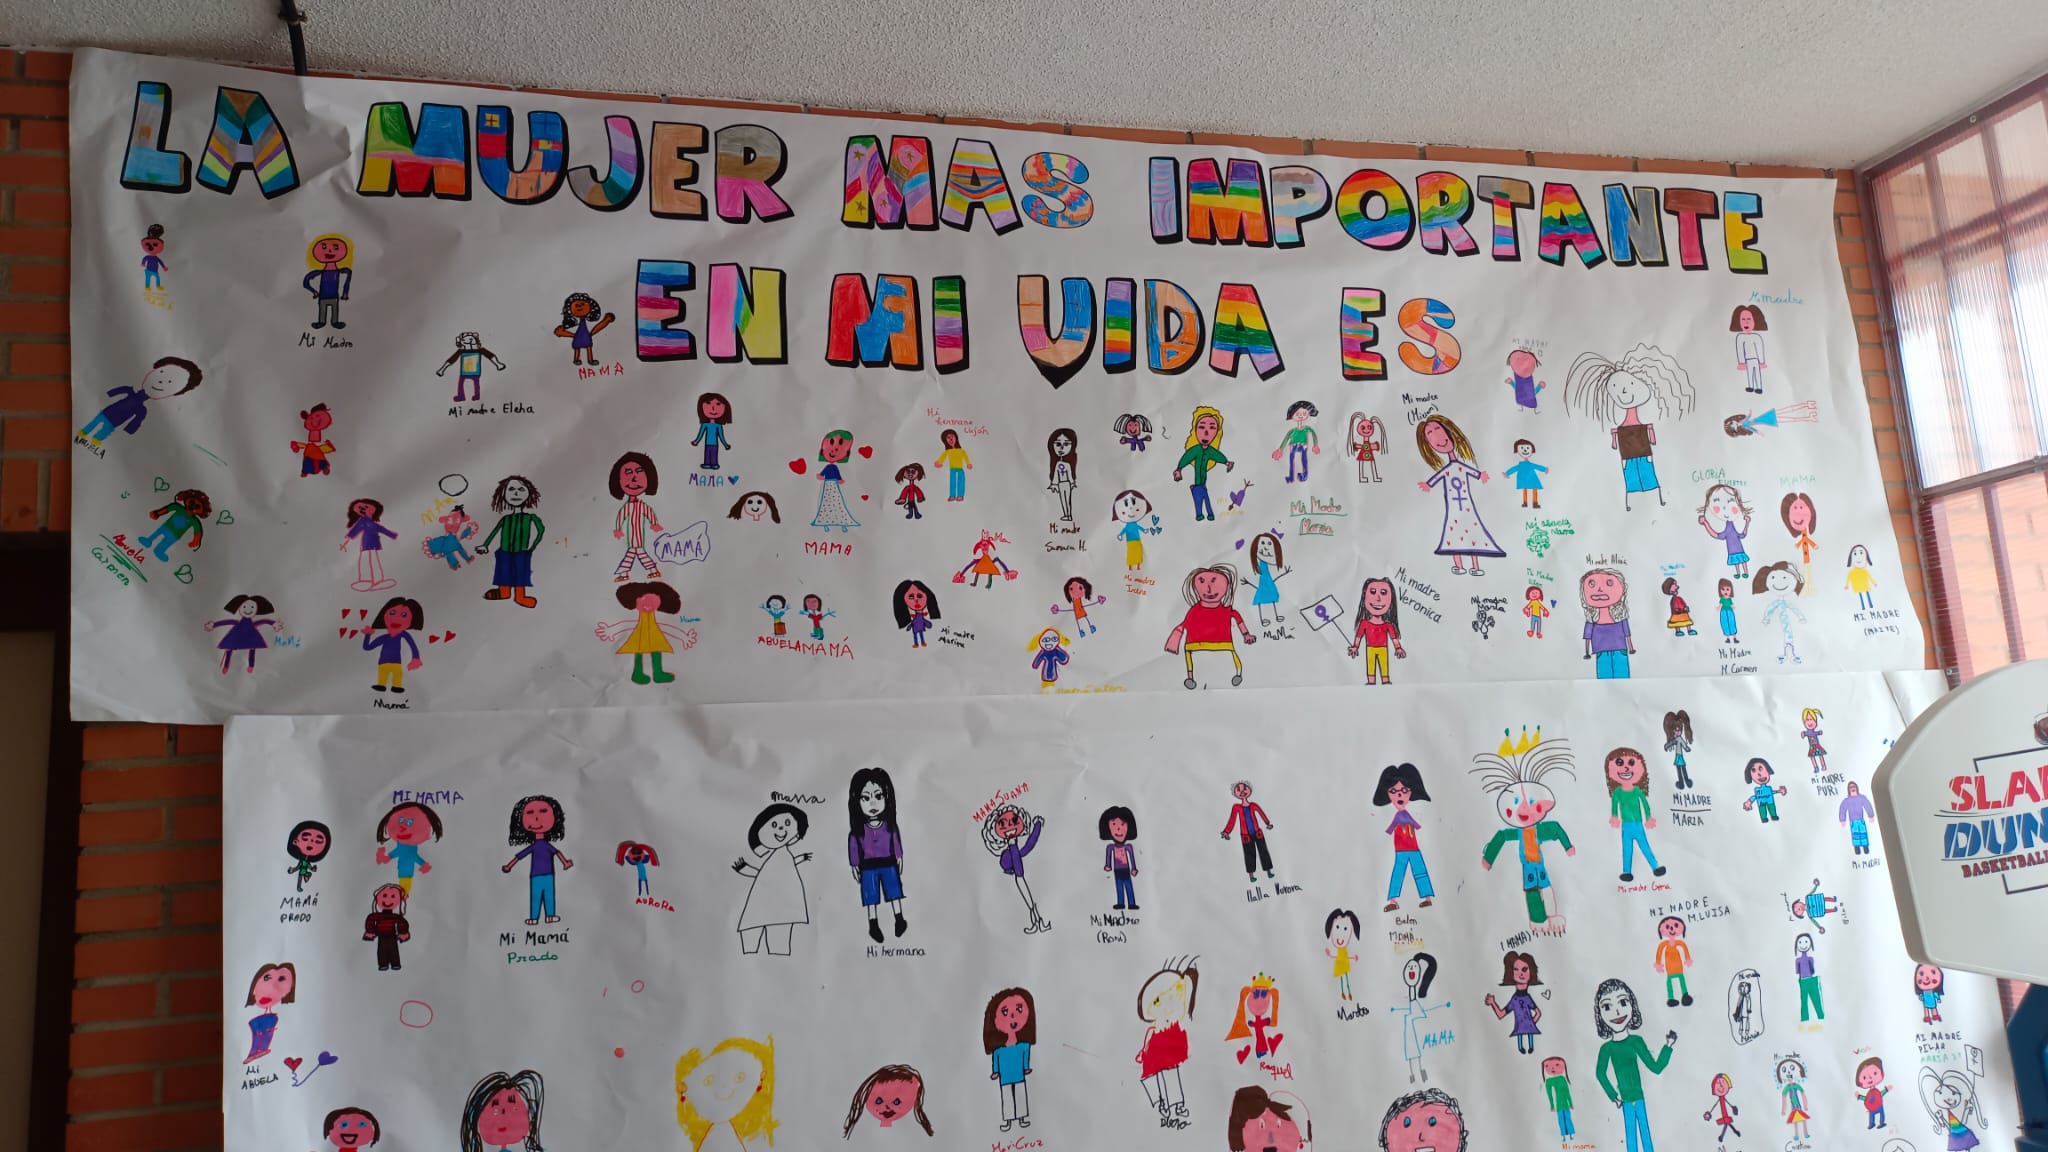 LA MUJER MAS IMPORTANTE
EN MI VIDA ES
Mi Madre
Mi madre
MAMÁ
Mi madre Elena
ABUELA
MAMA
Mi hermana
Mi madre
MI MADRE
GLORIA
FUERTES
MAMA
Abuela
Carmen
MAMÁ
MAMA
Mi madre
Samara H.
Mi Madre
Mi abuela
Mi madre
Irene
Mi madre
Veronica
Mi madre
Maria
Mi madre Alicia
MaMá
ABUELA MAMÁ
Mi madre
Marina
MaMá
Mi Madre
M. Carmen
MI MADRE
(MAITE)
Mamá
MI MAMA
MAMA JUANA
MI MADRE
PURI
MI MADRE
MARIA
MAMÁ
PRADO
Mi Mamá
Prado
AURORA
Mi hermana
Mi Madre
(Rosi)
Mi madre Gema
MI MADRE
MI MADRE
M. LUISA
Belen
MAMÁ
(MAMA)
Marta
MAMA
Mi
ABUELA
Raquel
MI MADRE
PILAR
Mari Cruz
Mi mama
Cristina
SLA
DUN
BASKETBALL